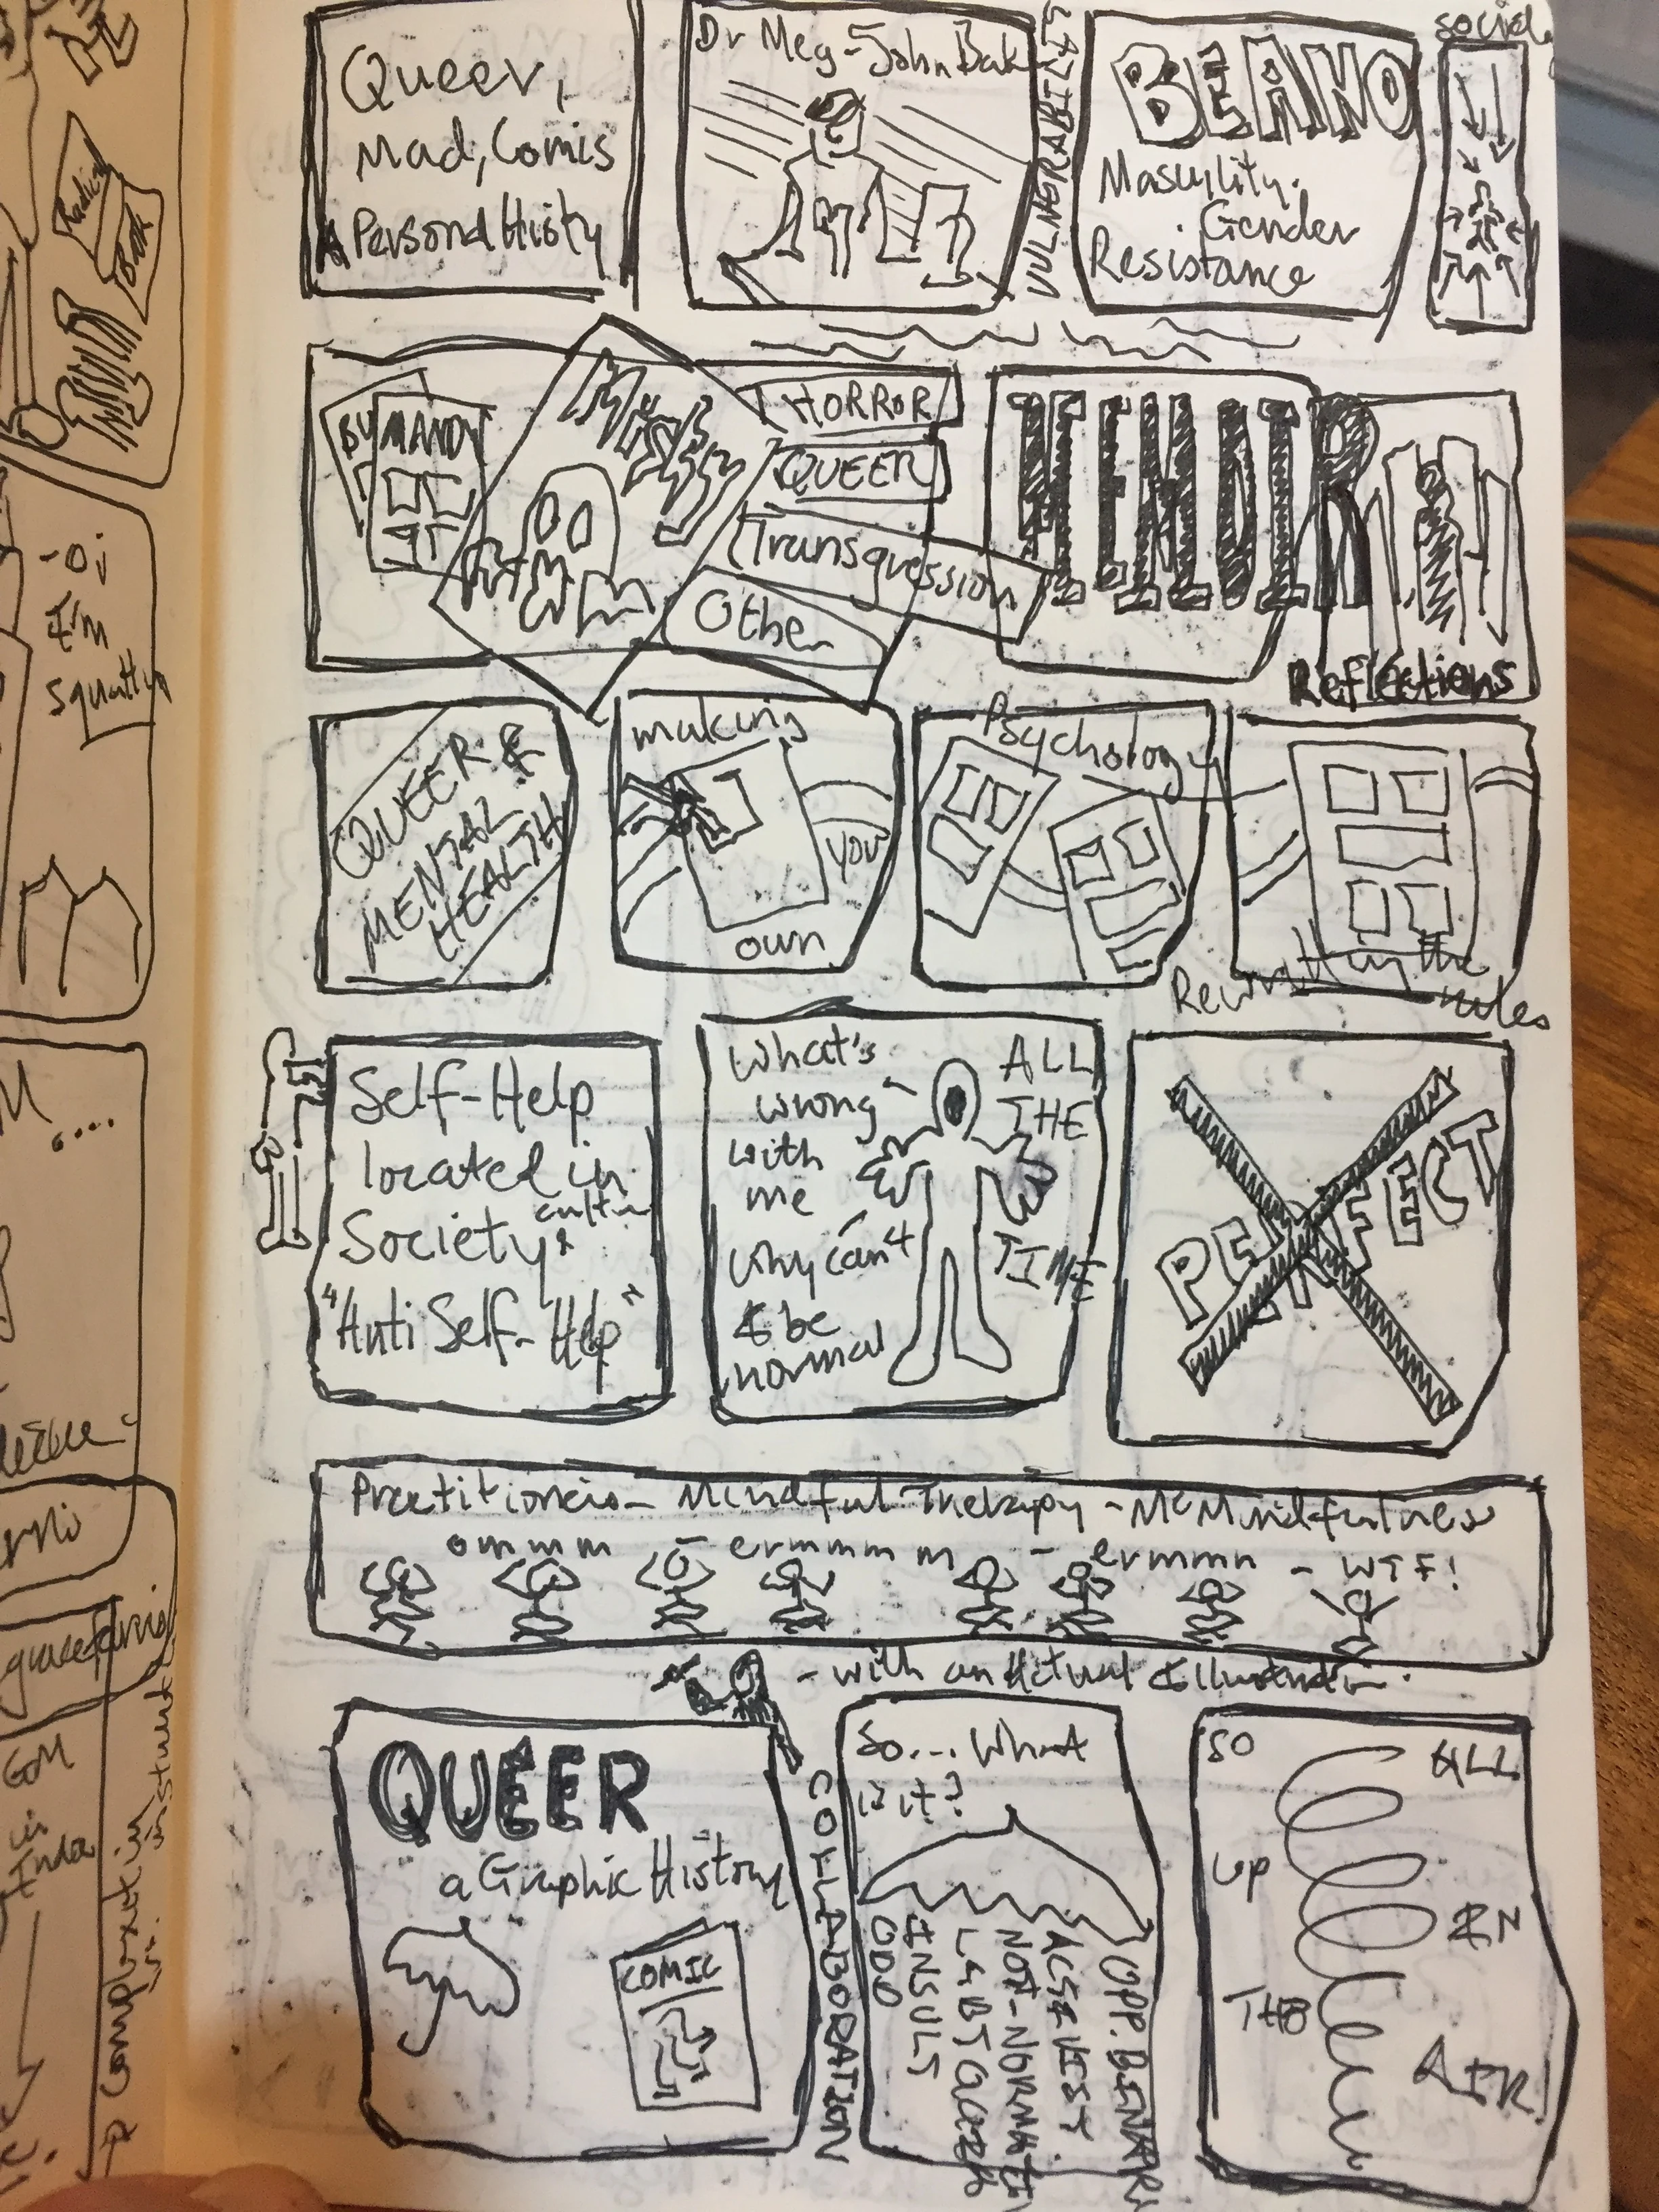 Queer,
Mad, Comis
A Persond Histy
Dr Meg-John Bak
VULNERABILITY
BEANO
Masculity.
. Gender
Resistance
social
BU
MANDY
MISTY
HORROR
QUEER
Transgression
Othe
MEMOIR
Reflections
QUEER &
MENTAL
HEALTH
making
you
own
Psychology
Rewritting the
rules
Self-Help
located in
Society &
cultu
"Anti Self-Help"
What's
wrong
with
me
Why can't
I be
normal
ALL
THE
TIME
PERFECT
Practitioners - Mindful Therapy - McMindfulness
ommm - ermmmm - ermmm - WTF!
- with an Actual Illustrator.
QUEER
a Graphic History
COMIC
COLLABORATION
So... What
is it?
ODD
INSULT
NOT-NORMATI
OPP. BINARY
SO
ALL
up
IN
THE
AIR!
Radical
Book
- oi
I'm
squattin
M....
gracefarris
GOM
in
India